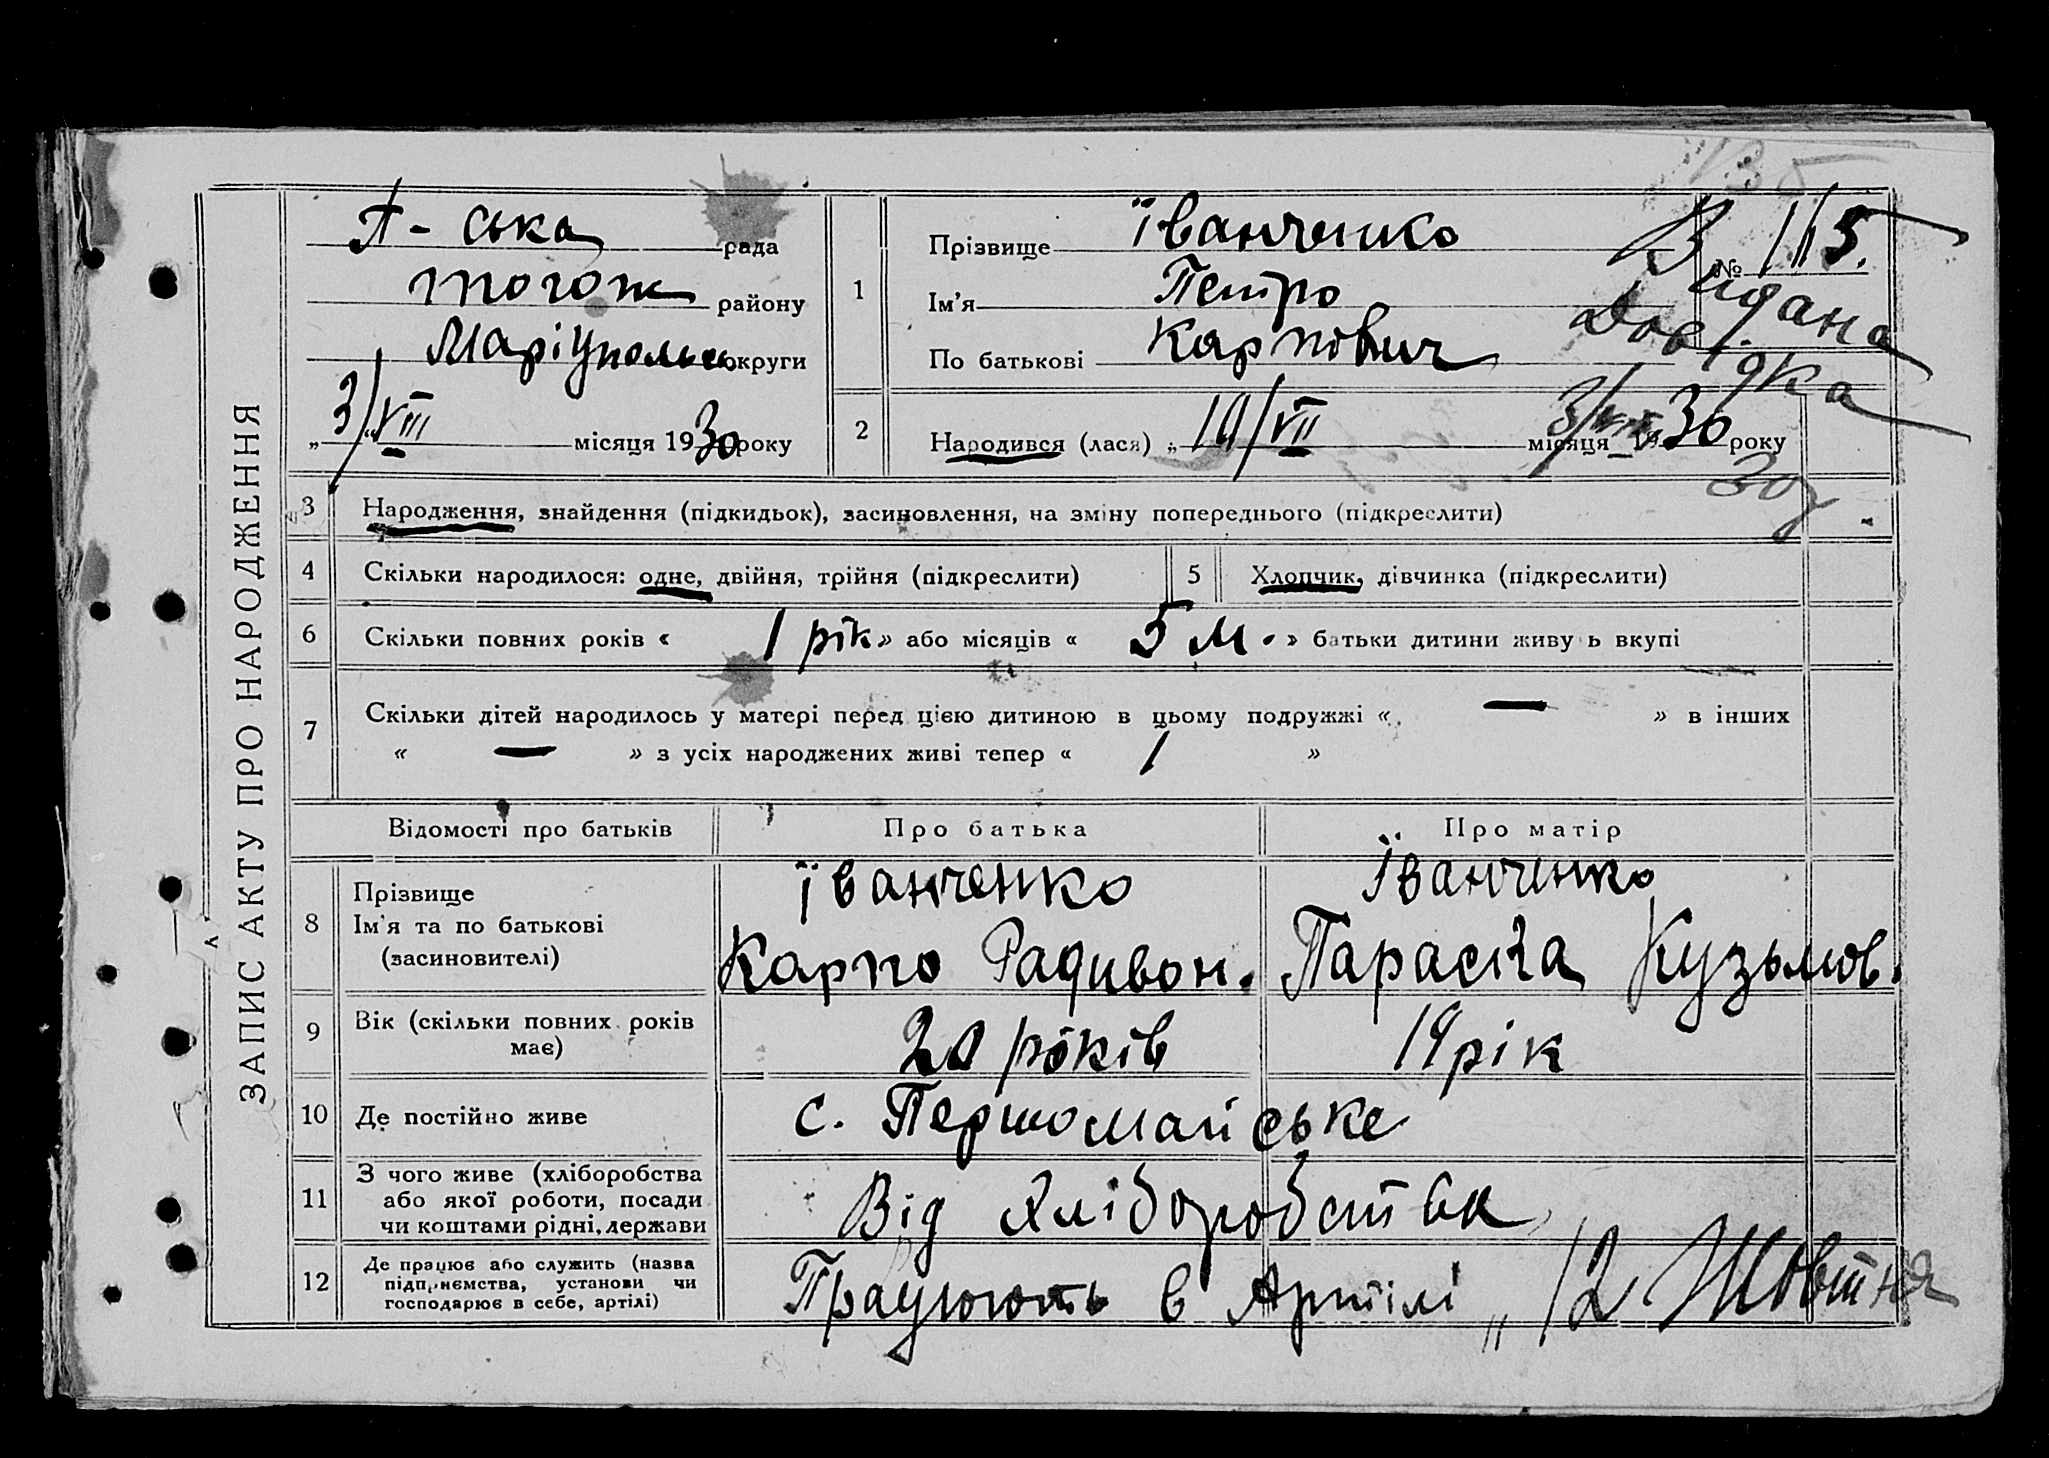 ЗАПИС АКТУ ПРО НАРОДЖЕННЯ
П-ська рада
району
Маріупольсь округи
„3/VIII місяця 1930 року
1 Прізвище Іванченко
Ім'я Петро
По батькові Карпович
№ 115.
Видана
Довідка
2 Народився (лася) „19/VII місяця 1930 року
3 Народження, знайдення (підкидьок), засиновлення, на зміну попереднього (підкреслити)
4 Скільки народилося: одне, двійня, трійня (підкреслити)
5 Хлопчик, дівчинка (підкреслити)
6 Скільки повних років « 1 рік » або місяців « 5 м. » батьки дитини живуть вкупі
7 Скільки дітей народилось у матері перед цією дитиною в цьому подружжі « — » в інших
« — » з усіх народжених живі тепер « 1 »
Відомості про батьків Про батька Про матір
8 Прізвище Іванченко Іванченко
Ім'я та по батькові Карпо Радивон. Параска Кузьмов.
(засиновителі)
9 Вік (скільки повних років має) 20 років 19 рік
10 Де постійно живе с. Першомайське
11 З чого живе (хліборобства
або якої роботи, посади
чи коштами рідні, держави
Від хліборобства
12 Де працює або служить (назва
підприємства, установи чи
господарює в себе, артілі)
Працюють в Артілі „12 Жовтня